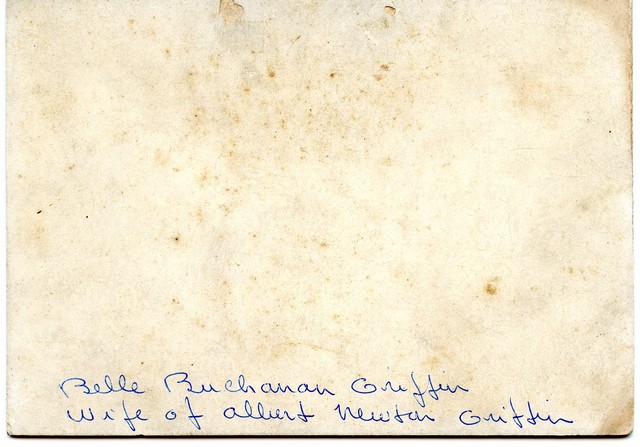 Belle Buchanan Griffin
wife of Albert Newton Griffin